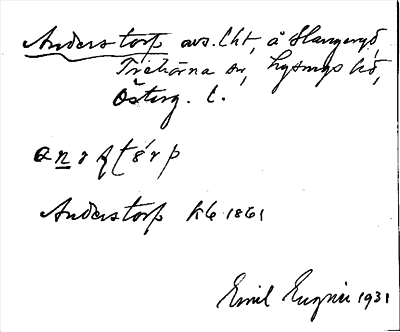 Anderstorp avs. lht, å Slangeryd,
Trehörna sn, Lysings hd,
Österg. l.
Anderstorp kb 1861
Emil 1931